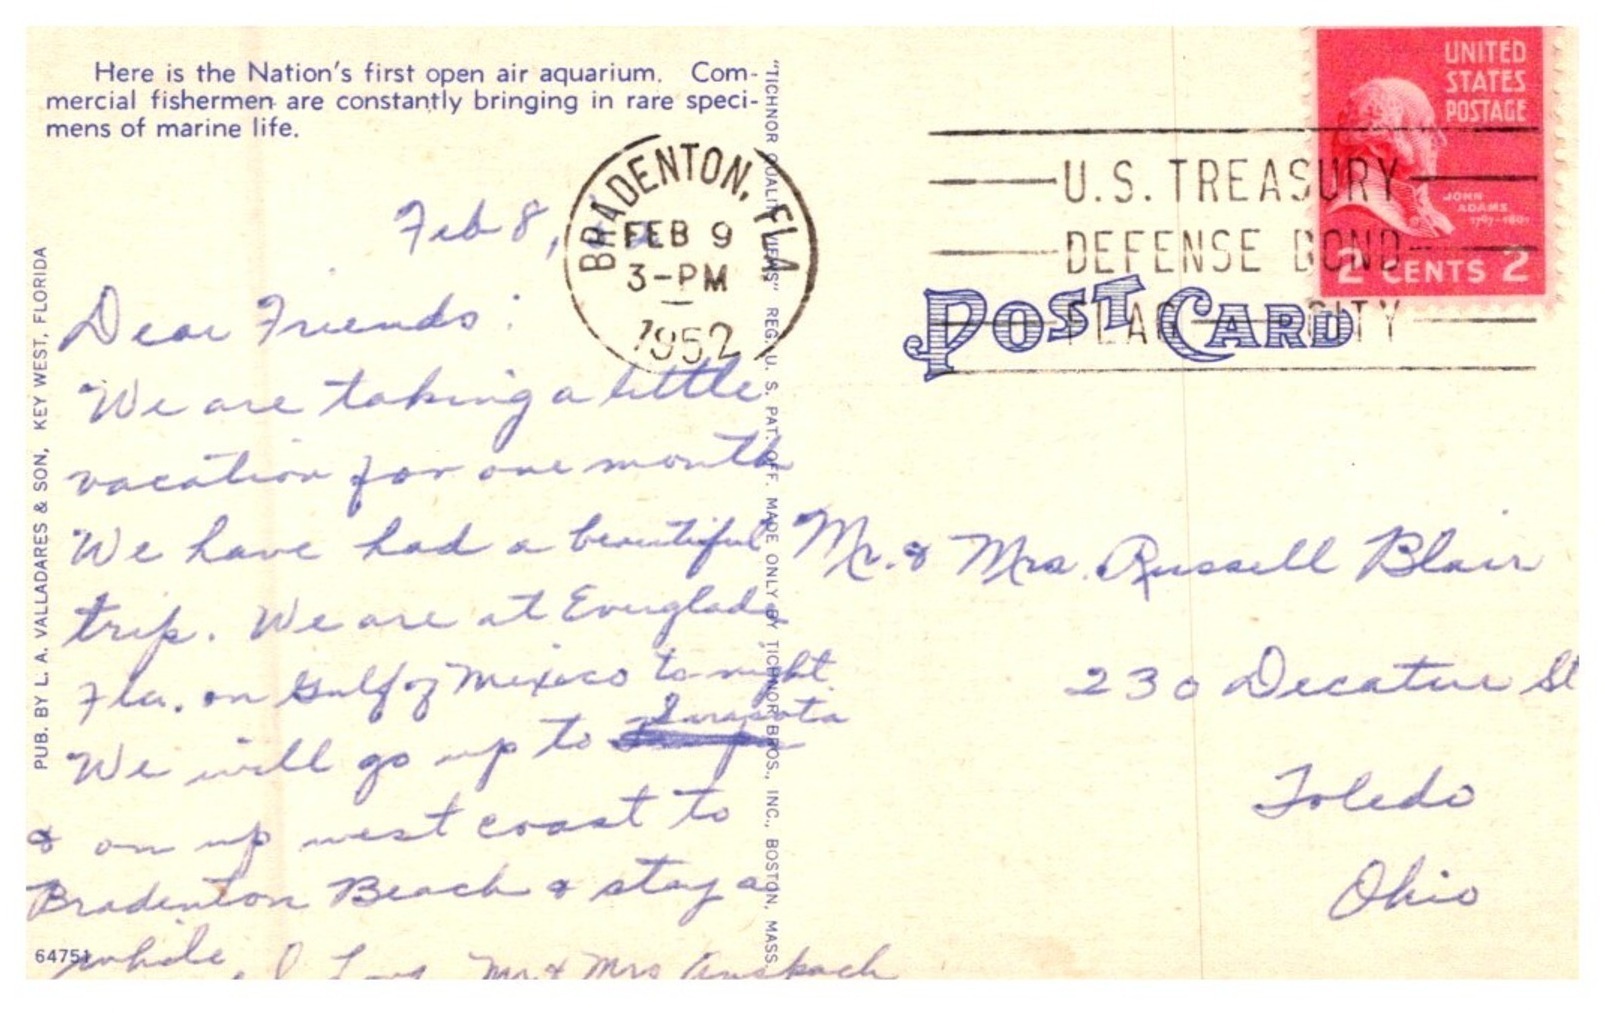 Here is the Nation's first open air aquarium. Com-
mercial fishermen are constantly bringing in rare speci-
mens of marine life.
Feb 8,
Dear Friends:
We are taking a little
vacation for one month
We have had a beautiful
trip. We are at Everglades
Fla. on Gulf of Mexico to night
We will go up to Sarasota
& on up west coast to
Bradenton Beach & stay a
while, Mr & Mrs
64751
PUB. BY L. A. VALLADARES & SON, KEY WEST, FLORIDA
"TICHNOR QUALITY VIEWS" REG. U. S. PAT. OFF. MADE ONLY BY TICHNOR BROS., INC., BOSTON, MASS.
BRADENTON, FLA
FEB 9
3-PM
1952
U.S. TREASURY
DEFENSE BOND
FLAG CITY
UNITED
STATES
POSTAGE
JOHN
ADAMS
2 CENTS 2
POST CARD
Mr. & Mrs. Russell Blair
230 Decatur St
Toledo
Ohio